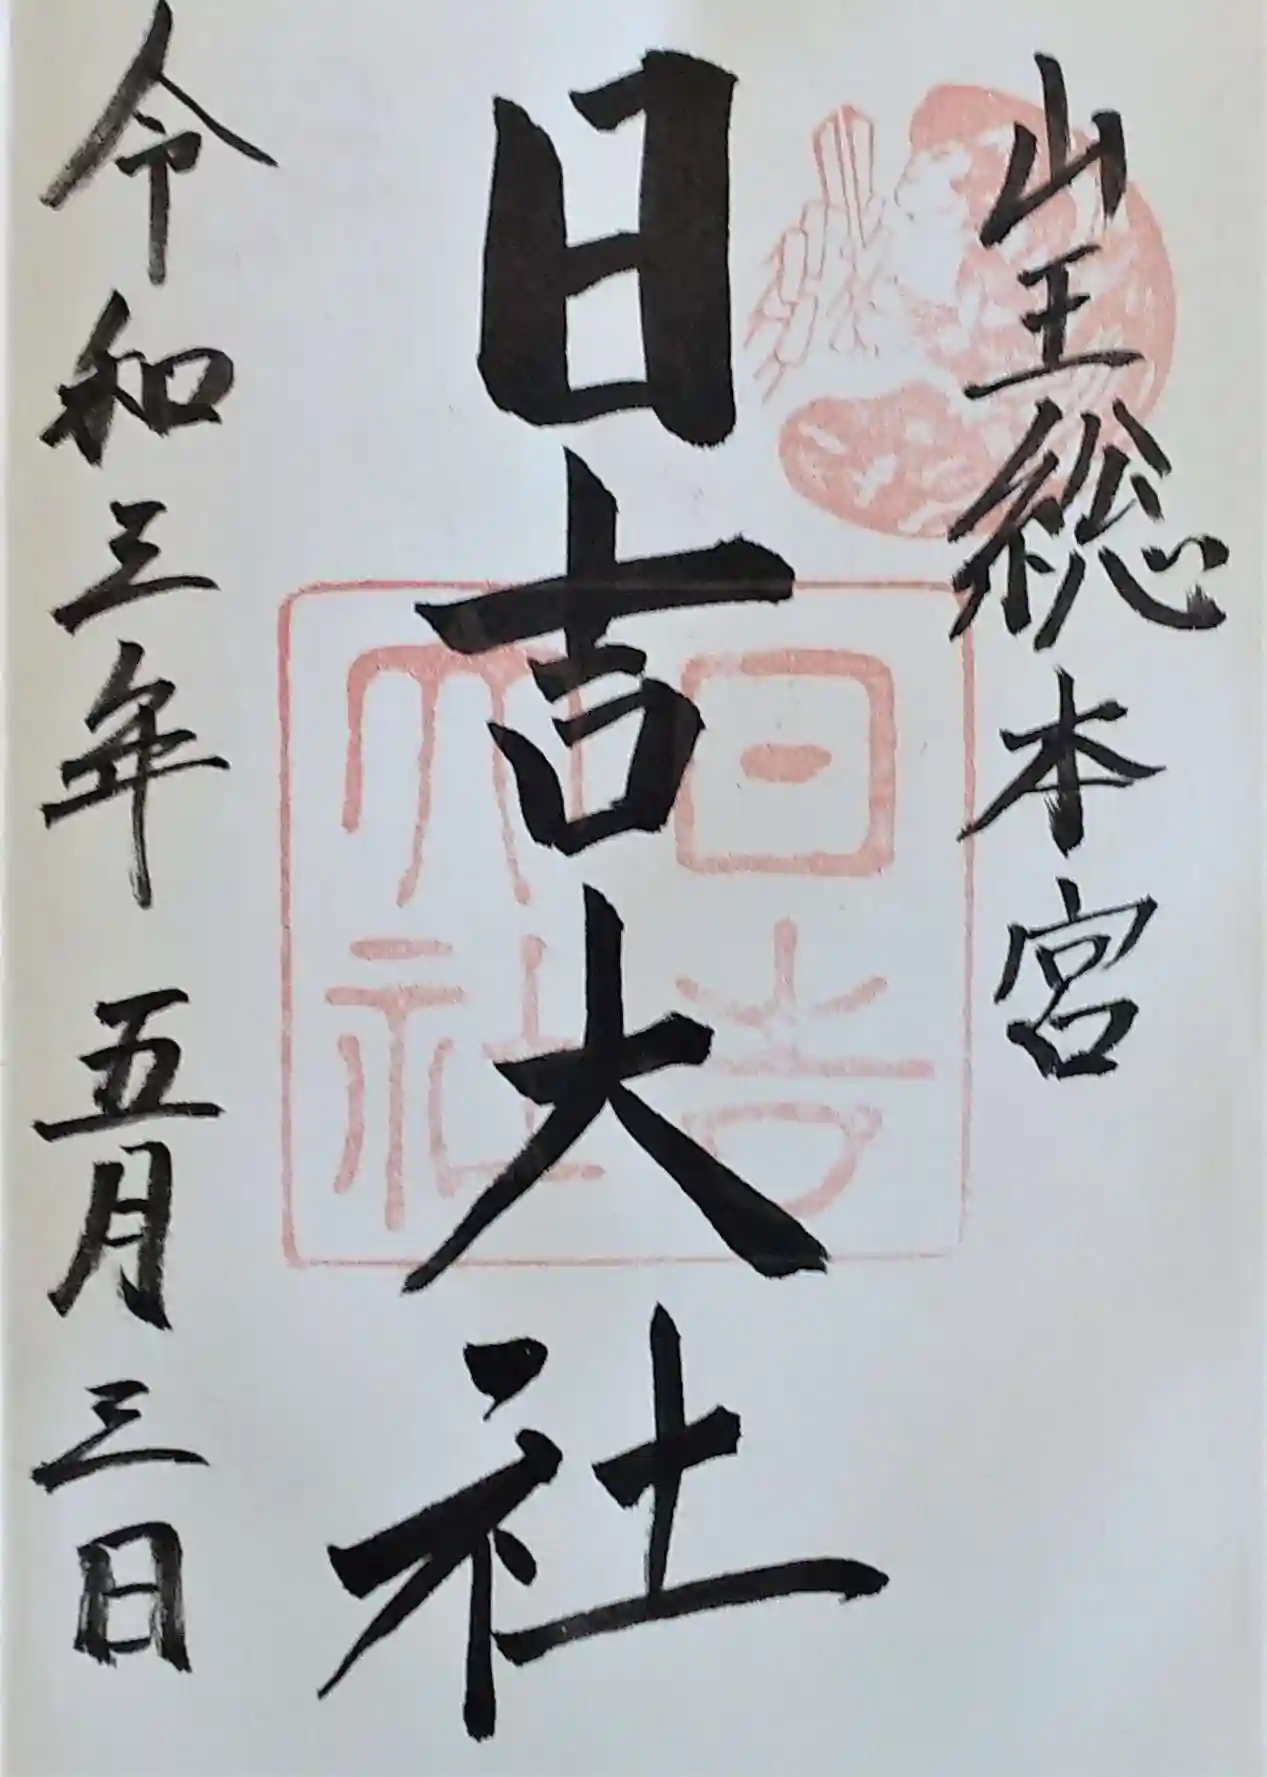 山王総本宮
日吉大社
日吉
大社
令和三年 五月三日